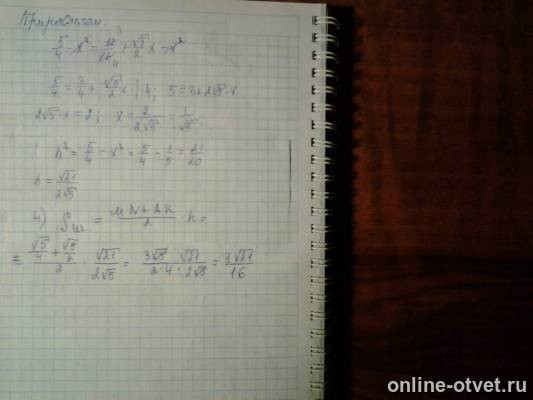 Приравняем
5/4 - x² = 12/16 + √5/2 x - x²
5/4 = 3/4 + √5/2 x | · 4; 5 = 3 + 2√5 · x
2√5 · x = 2; x = 2/2√5 = 1/√5
h² = 5/4 - x² = 5/4 - 1/5 = 21/20
h = √21/2√5
4) S = MN + AK/2 · h =
= √5/4 + √5/2/2 · √21/2√5 = 3√5/2·4 · √21/2√5 = 3√21/16
online-otvet.ru